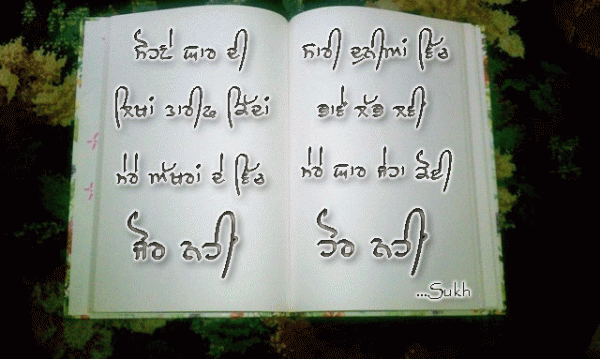 ਸੋਹਣੇ ਯਾਰ ਦੀ
ਲਿਖਾਂ ਤਾਰੀਫ ਕਿੱਦਾਂ
ਮੇਰੇ ਅੱਖਰਾਂ ਦੇ ਵਿੱਚ
ਜੋਰ ਨਹੀਂ
ਸਾਰੀ ਦੁਨੀਆਂ ਵਿੱਚ
ਭਾਵੇਂ ਲੱਭ ਲਈਂ
ਮੇਰੇ ਯਾਰ ਜੇਹਾ ਕੋਈ
ਹੋਰ ਨਹੀਂ
...Sukh